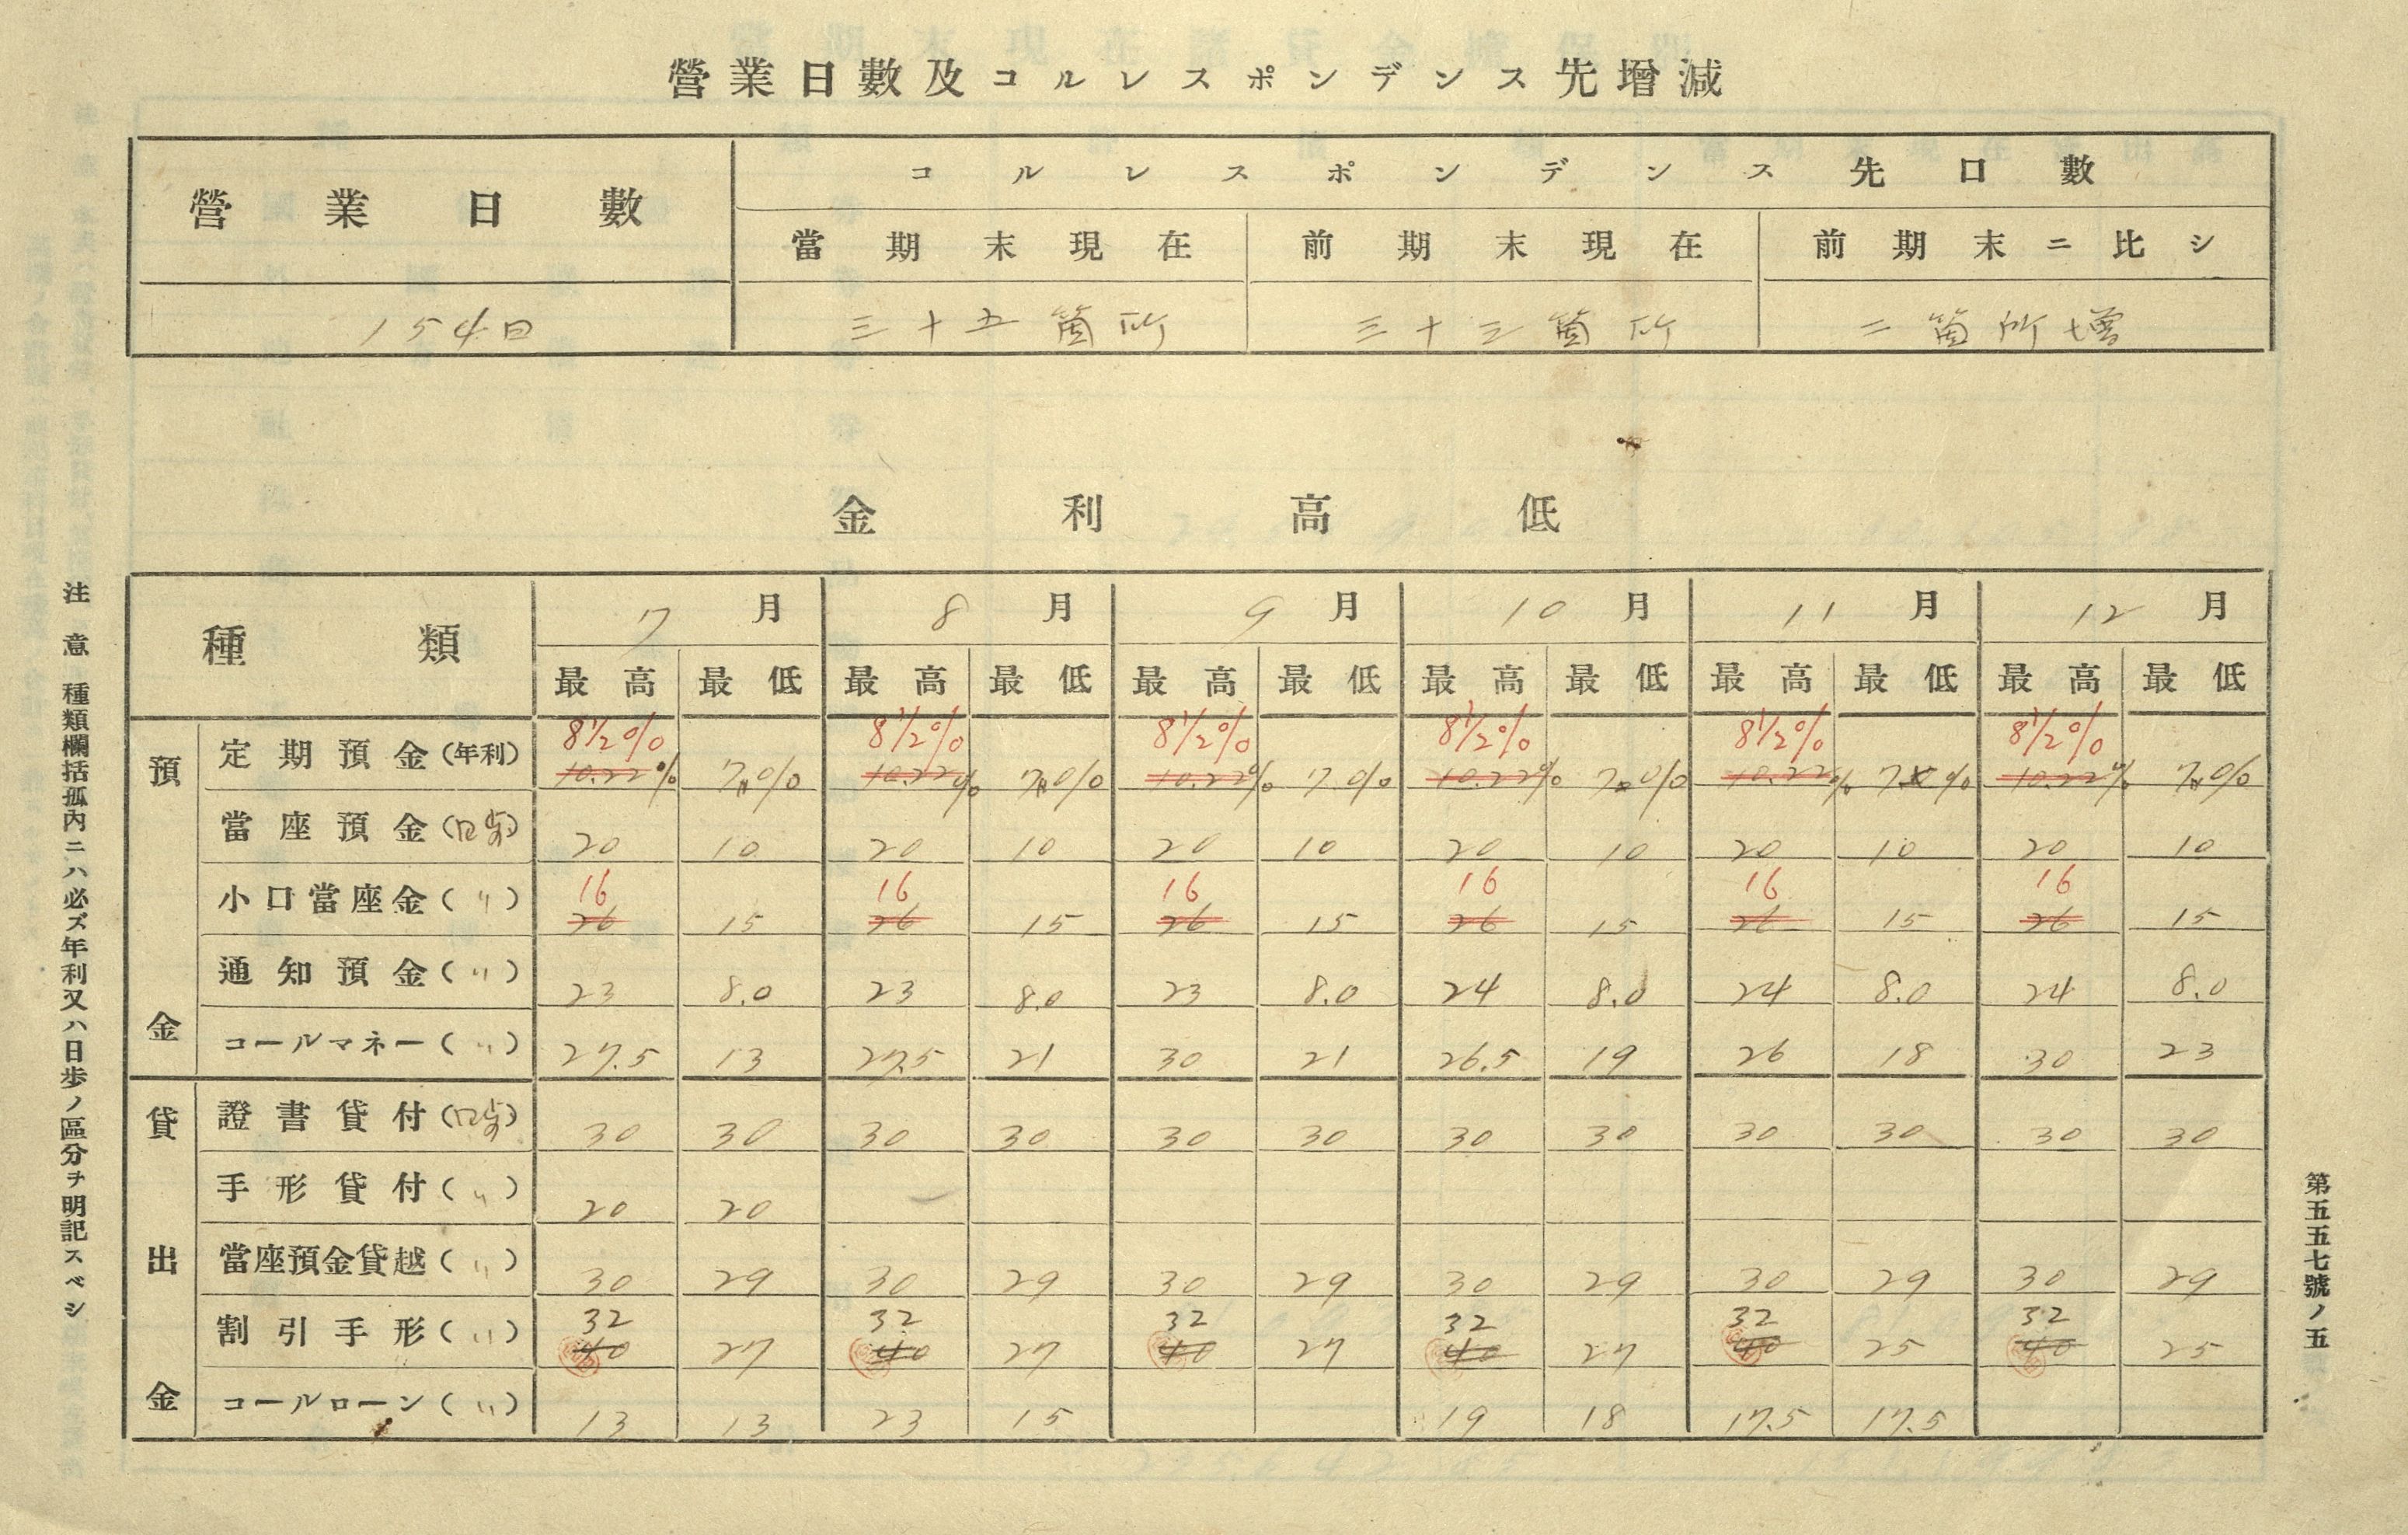 營業日數及コルレスポンデンス先增減
營業日數 コルレスポンデンス先口數
當期末現在 前期末現在 前期末ニ比シ
154日 三十五箇所 三十三箇所 二箇所增
金利高低
種類 7月 8月 9月 10月 11月 12月
最高 最低 最高 最低 最高 最低 最高 最低 最高 最低 最高 最低
預金
8 1/2% 8 1/2% 8 1/2% 8 1/2% 8 1/2% 8 1/2%
定期預金(年利) 10.22% 7% 10.22% 7% 10.22% 7% 10.22% 7% 10.22% 7% 10.22% 7%
當座預金(日歩) 20 10 20 10 20 10 20 10 20 10 20 10
16 16 16 16 16 16
小口當座金(〃) 26 15 26 15 26 15 26 15 26 15 26 15
通知預金(〃) 23 8.0 23 8.0 23 8.0 24 8.0 24 8.0 24 8.0
コールマネー(〃) 27.5 13 27.5 21 30 21 26.5 19 26 18 30 23
貸出金
證書貸付(日歩) 30 30 30 30 30 30 30 30 30 30 30 30
手形貸付(〃) 20 20
當座預金貸越(〃) 30 29 30 29 30 29 30 29 30 29 30 29
32 32 32 32 32 32
割引手形(〃) 40 27 40 27 40 27 40 27 40 25 40 25
コールローン(〃) 13 13 23 15 19 18 17.5 17.5
注意 種類欄括孤內ニハ必ズ年利又ハ日歩ノ區分ヲ明記スベシ
第五五七號ノ五